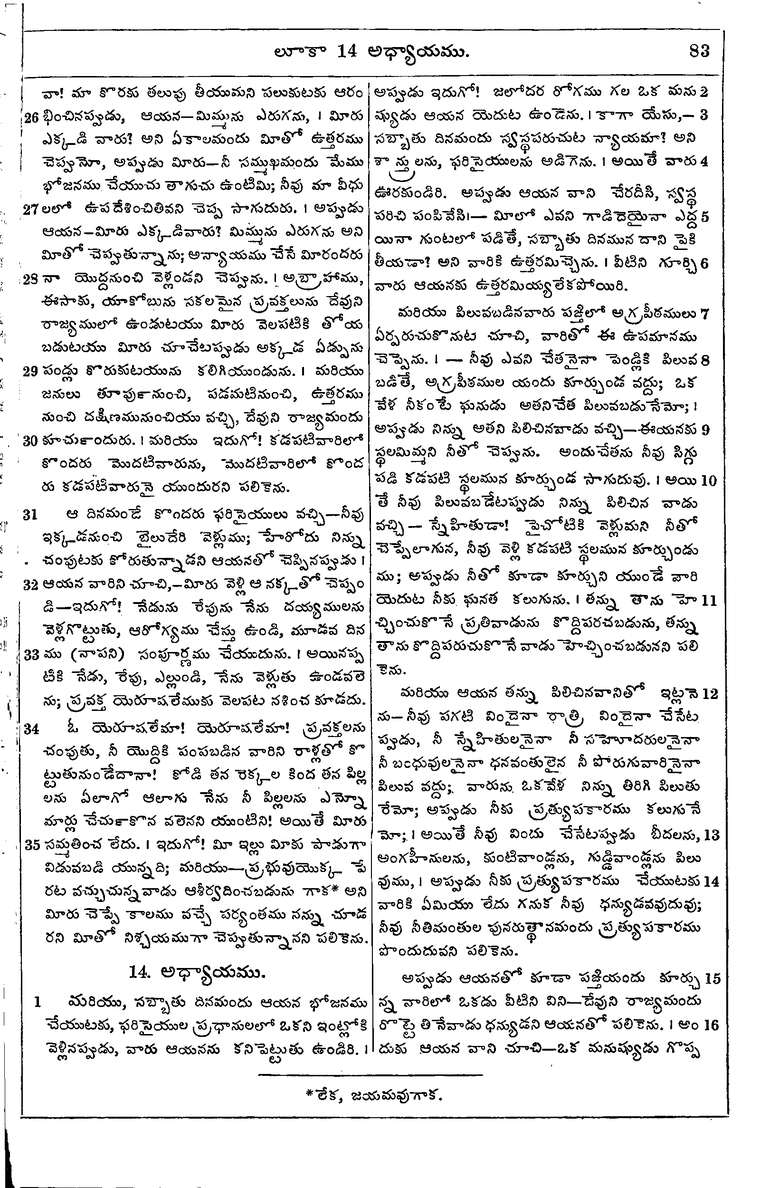 లూకా 14 అధ్యాయము. 83
వా! మా కొరకు తలుపు తీయుమని పలుకుటకు ఆరం
26 భించినప్పుడు, ఆయన—మిమ్మును ఎరుగను, । మీరు
ఎక్కడి వారు? అని ఏకాలమందు మీతో ఉత్తరము
చెప్పునో, అప్పుడు మీరు—నీ సమ్ముఖమందు మేము
భోజనము చేయుచు తాగుచు ఉంటిమి; నీవు మా వీధు
27 లలో ఉపదేశించితివని చెప్ప సాగుదురు. । అప్పుడు
ఆయన—మీరు ఎక్కడివారు? మిమ్మును ఎరుగను అని
మీతో చెప్పుతున్నాను; అన్యాయము చేసే మీరందరు
28 నా యొద్దనుంచి వెళ్లండని చెప్పును. । అబ్రాహాము,
ఈసాకు, యాకోబును సకలమైన ప్రవక్తలును దేవుని
రాజ్యములో ఉండుటయు మీరు వెలపటికి తోయ
బడుటయు మీరు చూచేటప్పుడు అక్కడ ఏడ్పును
29 పండ్లు కొరుకుటయును కలిగియుండును. । మరియు
జనులు తూర్పునుంచి, పడమటినుంచి, ఉత్తరము
నుంచి దక్షిణమునుంచియు వచ్చి, దేవుని రాజ్యమందు
30 కూర్చుందురు. । మరియు ఇదుగో! కడపటివారిలో
కొందరు మొదటివారును, మొదటివారిలో కొంద
రు కడపటివారునై యుందురని పలికెను.
31 ఆ దినమందే కొందరు ఫరిసైయులు వచ్చి—నీవు
ఇక్కడనుంచి బైలుదేరి వెళ్లుము; హేరోదు నిన్ను
చంపుటకు కోరుతున్నాడని ఆయనతో చెప్పినప్పుడు ।
32 ఆయన వారిని చూచి,—మీరు వెళ్లి ఆ నక్కతో చెప్పం
డి—ఇదుగో! నేడును రేపును నేను దయ్యములను
వెళ్లగొట్టుతు, ఆరోగ్యము చేస్తు ఉండి, మూడవ దిన
33 ము (నాపని) సంపూర్ణము చేయుదును. । అయినప్ప
టికి నేడు, రేపు, ఎల్లుండి, నేను వెళ్లుతు ఉండవలె
ను; ప్రవక్త యెరూషలేముకు వెలపట నశించ కూడదు.
34 ఓ యెరూషలేమా! యెరూషలేమా! ప్రవక్తలను
చంపుతు, నీ యొద్దికి పంపబడిన వారిని రాళ్లతో కొ
ట్టుతునుండేదానా! కోడి తన రెక్కల కింద తన పిల్ల
లను ఏలాగో ఆలాగు నేను నీ పిల్లలను ఎన్నో
మార్లు చేర్చుకొన వలెనని యుంటిని! అయితే మీరు
35 సమ్మతించ లేదు. । ఇదుగో! మీ ఇల్లు మీకు పాడుగా
విడువబడి యున్నది; మరియు—ప్రభువుయొక్క పే
రట వచ్చుచున్నవాడు ఆశీర్వదించబడును గాక* అని
మీరు చెప్పే కాలము వచ్చే పర్యంతము నన్ను చూడ
రని మీతో నిశ్చయముగా చెప్పుతున్నానని పలికెను.
14. అధ్యాయము.
1 మరియు, సబ్బాతు దినమందు ఆయన భోజనము
చేయుటకు, ఫరిసైయుల ప్రధానులలో ఒకని ఇంట్లోకి
వెళ్లినప్పుడు, వారు ఆయనను కనిపెట్టుతు ఉండిరి. ।
అప్పుడు ఇదుగో! జలోదర రోగము గల ఒక మను 2
ష్యుడు ఆయన యెదుట ఉండెను. । కాగా యేసు,— 3
సబ్బాతు దినమందు స్వస్థపరుచుట న్యాయమా? అని
శాస్త్రులను, ఫరిసైయులను అడిగెను. । అయితే వారు 4
ఊరకుండిరి. అప్పుడు ఆయన వాని చేరదీసి, స్వస్థ
పరిచి పంపివేసి।— మీలో ఎవని గాడిదెయైనా ఎద్ద 5
యినా గుంటలో పడితే, సబ్బాతు దినమున దాని పైకి
తీయడా? అని వారికి ఉత్తరమిచ్చెను. । వీటిని గూర్చి 6
వారు ఆయనకు ఉత్తరమియ్యలేకపోయిరి.
మరియు పిలువబడినవారు పఙ్తిలో అగ్రపీఠములు 7
ఏర్పరుచుకొనుట చూచి, వారితో ఈ ఉపమానము
చెప్పెను. । — నీవు ఎవని చేతనైనా పెండ్లికి పిలువ 8
బడితే, అగ్రపీఠముల యందు కూర్చుండ వద్దు; ఒక
వేళ నీకంటే ఘనుడు అతనిచేత పిలువబడునేమో; ।
అప్పుడు నిన్ను అతని పిలిచినవాడు వచ్చి—ఈయనకు 9
స్థలమిమ్మని నీతో చెప్పును. అందుచేతను నీవు సిగ్గు
పడి కడపటి స్థలమున కూర్చుండ సాగుదువు. । అయి 10
తే నీవు పిలువబడేటప్పుడు నిన్ను పిలిచిన వాడు
వచ్చి — స్నేహితుడా! పైచోటికి వెళ్లుమని నీతో
చెప్పేలాగున, నీవు వెళ్లి కడపటి స్థలమున కూర్చుండు
ము; అప్పుడు నీతో కూడా కూర్చుని యుండే వారి
యెదుట నీకు ఘనత కలుగును. । తన్ను తాను హె 11
చ్చించుకొనే ప్రతివాడును కొద్దిపరచబడును, తన్ను
తాను కొద్దిపరుచుకొనే వాడు హెచ్చించబడునని పలి
కెను.
మరియు ఆయన తన్ను పిలిచినవానితో ఇట్లనె 12
ను— నీవు పగటి విందైనా రాత్రి విందైనా చేసేట
ప్పుడు, నీ స్నేహితులనైనా నీ సహోదరులనైనా
నీ బంధువులనైనా ధనవంతులైన నీ పోరుగువారినైనా
పిలువ వద్దు; వారును ఒకవేళ నిన్ను తిరిగి పిలుతు
రేమో; అప్పుడు నీకు ప్రత్యుపకారము కలుగునే
మో; । అయితే నీవు విందు చేసేటప్పుడు బీదలను, 13
అంగహీనులను, కుంటివాండ్లను, గుడ్డివాండ్లను పిలు
వుము, । అప్పుడు నీకు ప్రత్యుపకారము చేయుటకు 14
వారికి ఏమియు లేదు గనుక నీవు ధన్యుడవవుదువు;
నీవు నీతిమంతుల పునరుత్థానమందు ప్రత్యుపకారము
పొందుదువని పలికెను.
అప్పుడు ఆయనతో కూడా పఙ్తియందు కూర్చు 15
న్న వారిలో ఒకడు వీటిని విని—దేవుని రాజ్యమందు
రొట్టె తినేవాడు ధన్యుడని ఆయనతో పలికెను. । అం 16
దుకు ఆయన వాని చూచి—ఒక మనుష్యుడు గొప్ప
*లేక, జయమవుగాక.